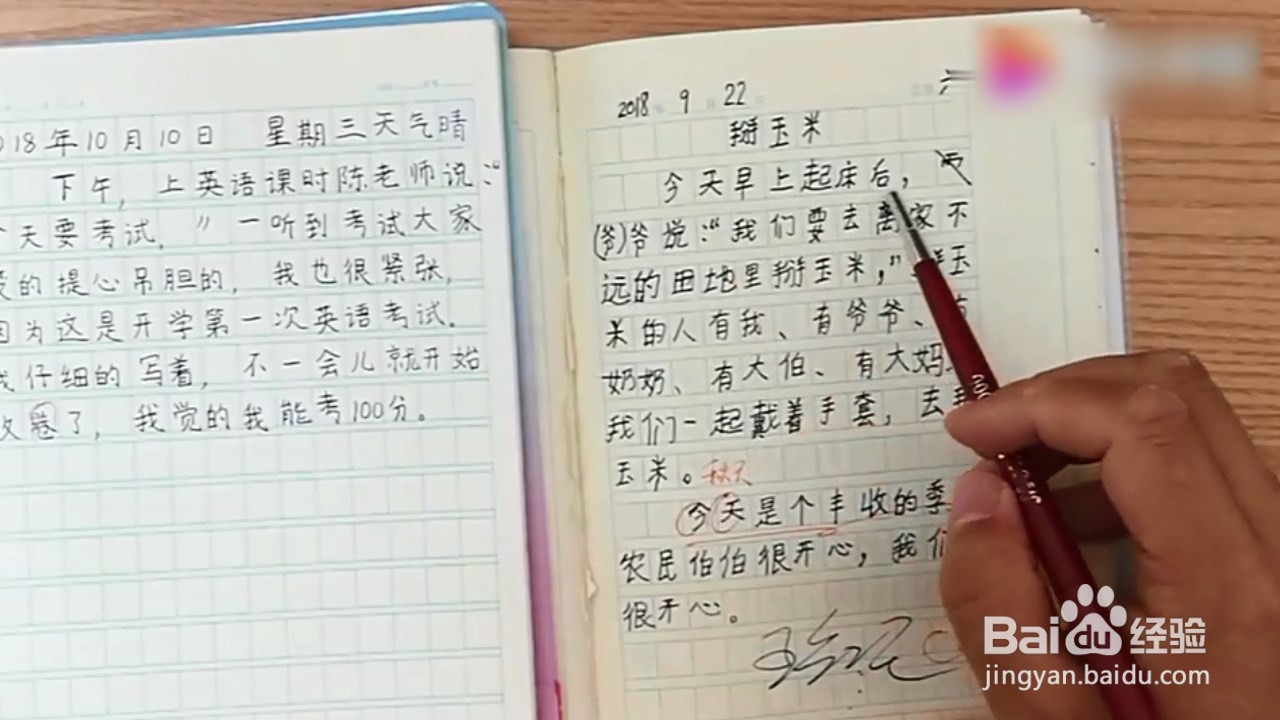 018年10月10日 星期三天气晴
下午，上英语课时陈老师说：“
天要考试，”一听到考试大家
的提心吊胆的，我也很紧张，
因为这是开学第一次英语考试．
我仔细的写着，不一会儿就开始
收卷了，我觉的我能考100分。
2018 9 22
掰玉米
今天早上起床后，
(爷)爷说：“我们要去离家不
远的田地里掰玉米，” 玉
米的人有我、有爷爷、
奶奶、有大伯、有大妈
我们一起戴着手套，去
玉米。秋天
今天是个丰收的季
农民伯伯很开心，我们
很开心。
Baidu经验
jingyan.baidu.com